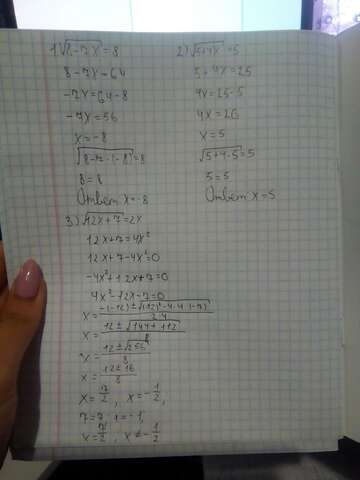 1) √8-7x = 8
8-7x=64
-7x=64-8
-7x=56
x=-8
√8-7·(-8)=8
8=8
Ответ x=-8
2) √5+4x=5
5+4x=25
4x=25-5
4x=20
x=5
√5+4·5=5
5=5
Ответ x=5
3) √12x+7=2x
12x+7=4x²
12x+7-4x²=0
-4x²+12x+7=0
4x²-12x-7=0
x=-(-12)±√(-12)²-4·4·(-7)/2·4
x=12±√144+112/8
x=12±√256/8
x=12±16/8
x=7/2, x=-1/2
7=7 1=-1,
x=7/2, x≠-1/2